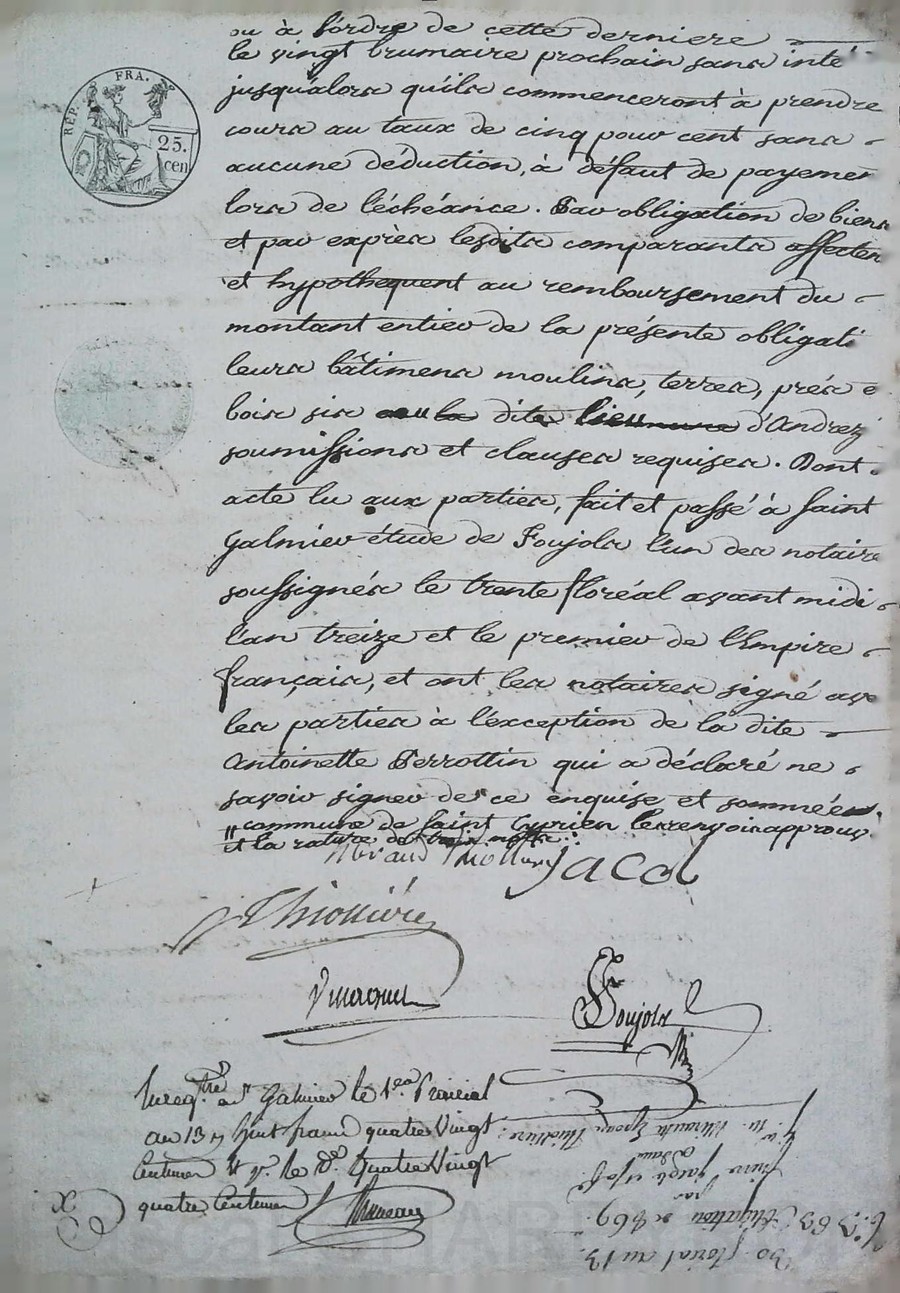 RÉP. FRA.
25.
cen
ou à l'ordre de cette derniere
le vingt brumaire prochain sans inté
jusqualors qu'ils commenceront à prendre
cours au taux de cinq pour cent sans
aucune déduction, à défaut de payemen
lors de l'échéance. Par obligation de biens
et par exprès lesdits comparants affecten
et hypothequent au remboursement du
montant entier de la présente obligati
leurs bâtimens moulins, terres, prés e
bois sis au la dite lieu d'Andrez
soumissions et clauses requises. Dont
acte lu aux parties, fait et passé à Saint
Galmier étude de Foujols l'un des notaire
soussignés le trente floréal avant midi
l'an treize et le premier de l'Empire
français, et ont les notaires signé ave
les parties à l'exception de la dite
Antoinette Perrottin qui a déclaré ne
savoir signer de ce enquise et sommée
" commune de Saint Cyprien le renvoi approuv
et la rature de trois mots
Jacod
Thiollière
Foujols
Enreg.tré à St Galmier le 1er Prairial
an 13 huit francs quatre Vingt
Centimes et Quatre Vingt
quatre Centimes
30 floréal an 13.
Obligation de 869
par